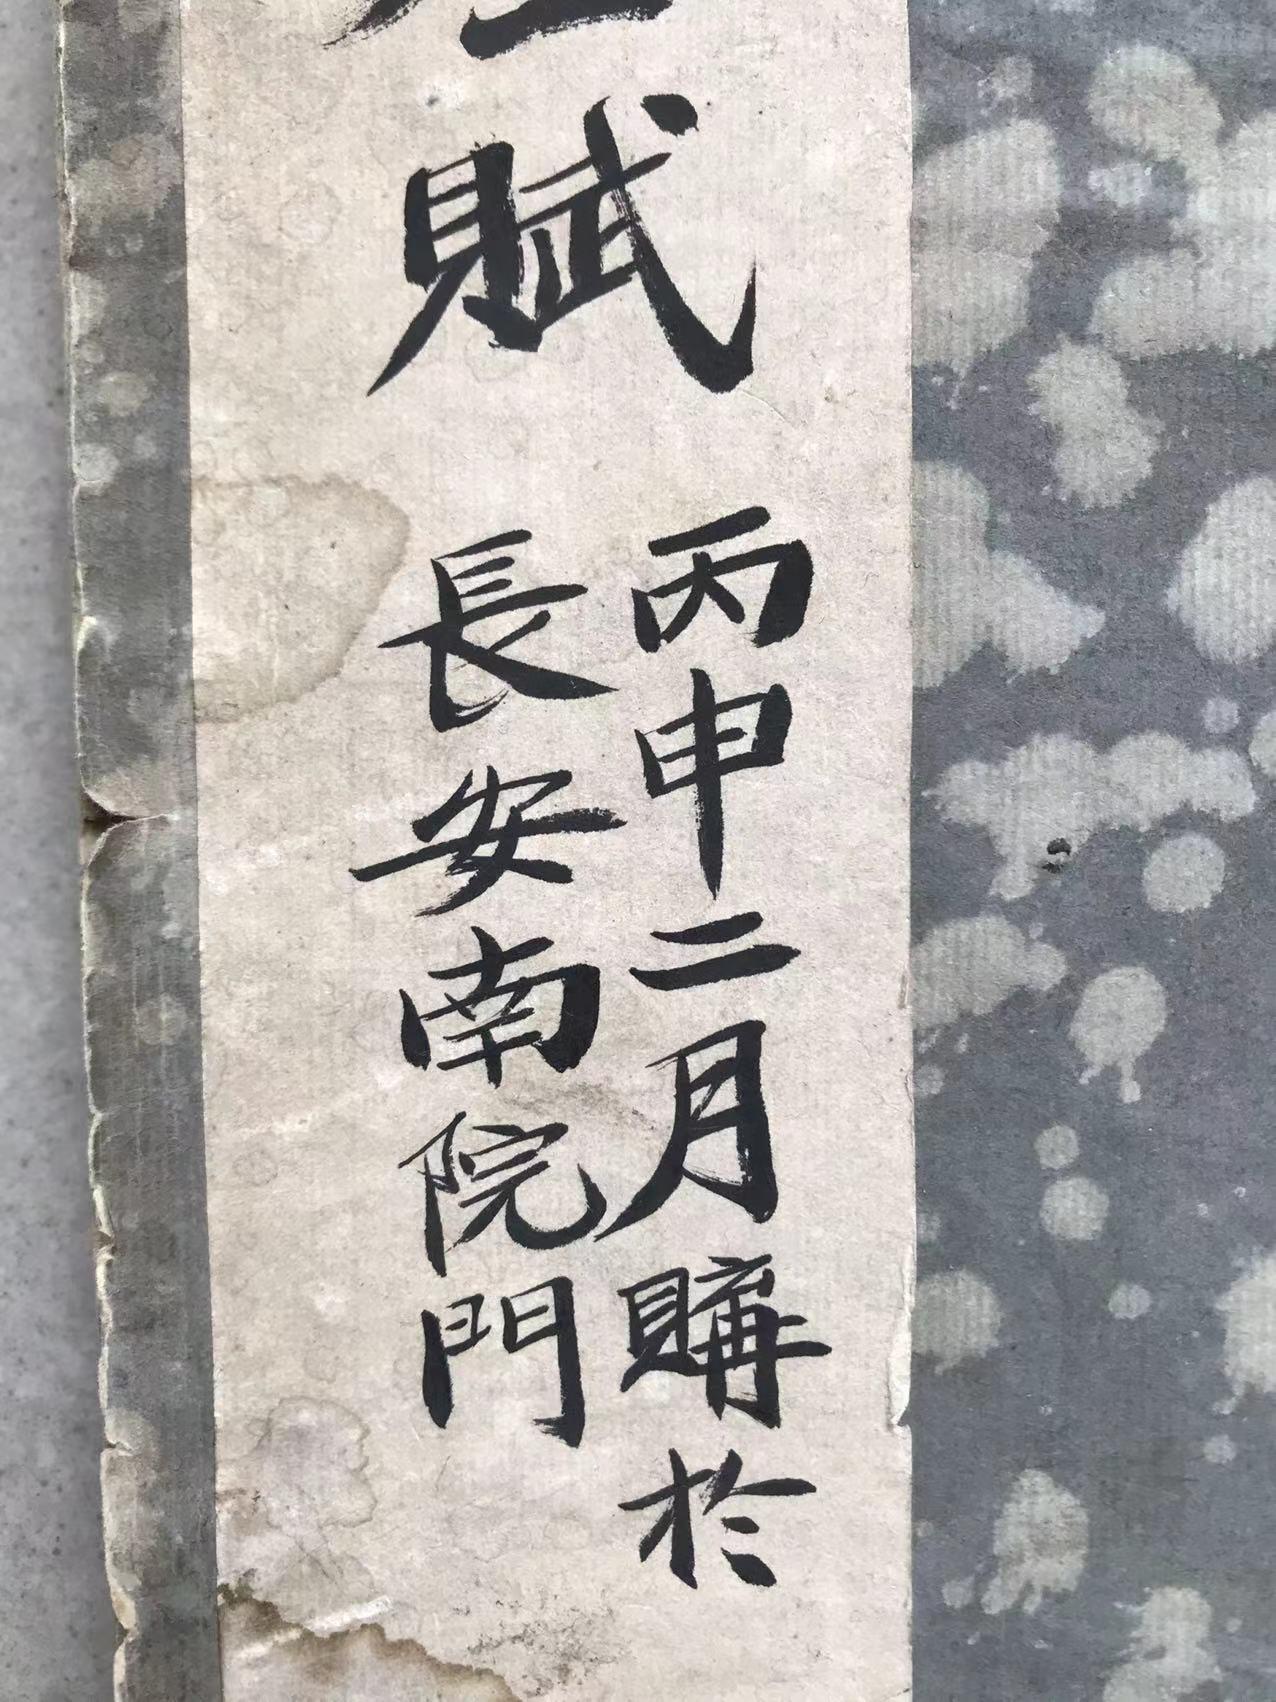 賦
丙申二月購於
長安南院門